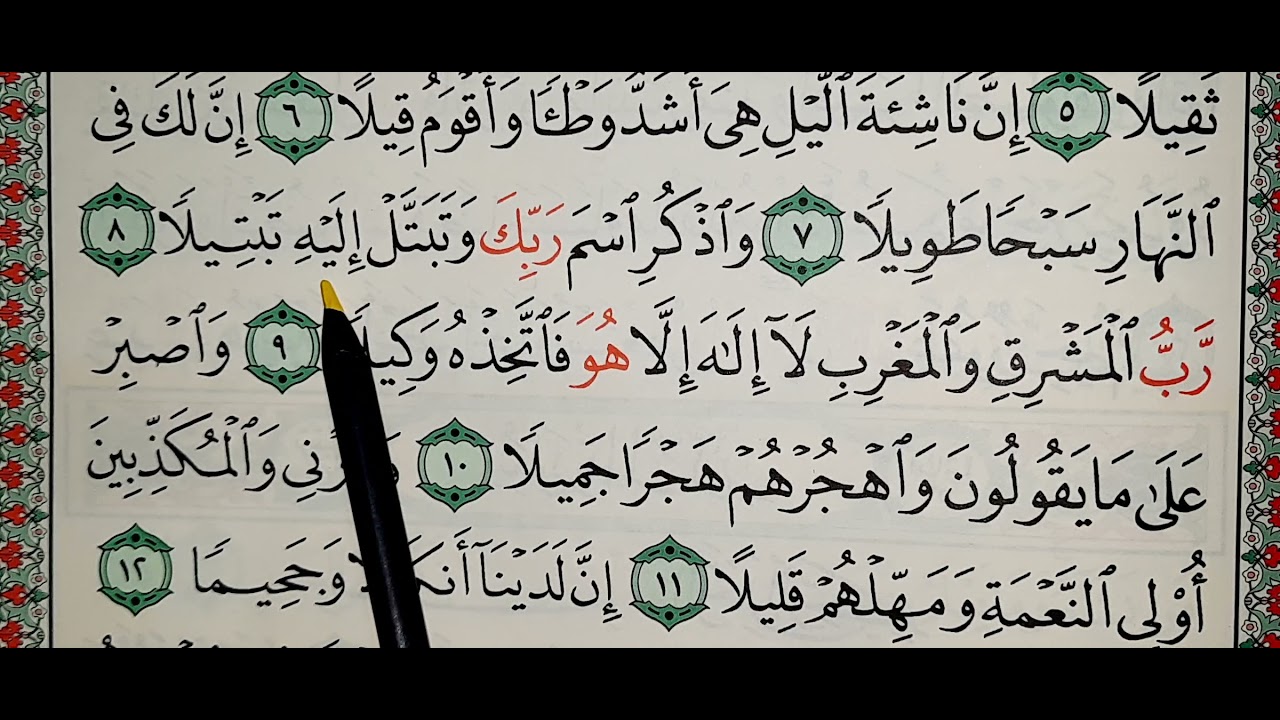 ثَقِيلًا ٥ إِنَّ نَاشِئَةَ ٱلَّيْلِ هِىَ أَشَدُّ وَطْـًٔا وَأَقْوَمُ قِيلًا ٦ إِنَّ لَكَ فِى
ٱلنَّهَارِ سَبْحًا طَوِيلًا ٧ وَٱذْكُرِ ٱسْمَ رَبِّكَ وَتَبَتَّلْ إِلَيْهِ تَبْتِيلًا ٨
رَّبُّ ٱلْمَشْرِقِ وَٱلْمَغْرِبِ لَآ إِلَٰهَ إِلَّا هُوَ فَٱتَّخِذْهُ وَكِيلًا ٩ وَٱصْبِرْ
عَلَىٰ مَا يَقُولُونَ وَٱهْجُرْهُمْ هَجْرًا جَمِيلًا ١٠ وَٱلْمُكَذِّبِينَ
أُو۟لِى ٱلنَّعْمَةِ وَمَهِّلْهُمْ قَلِيلًا ١١ إِنَّ لَدَيْنَآ وَجَحِيمًا ١٢